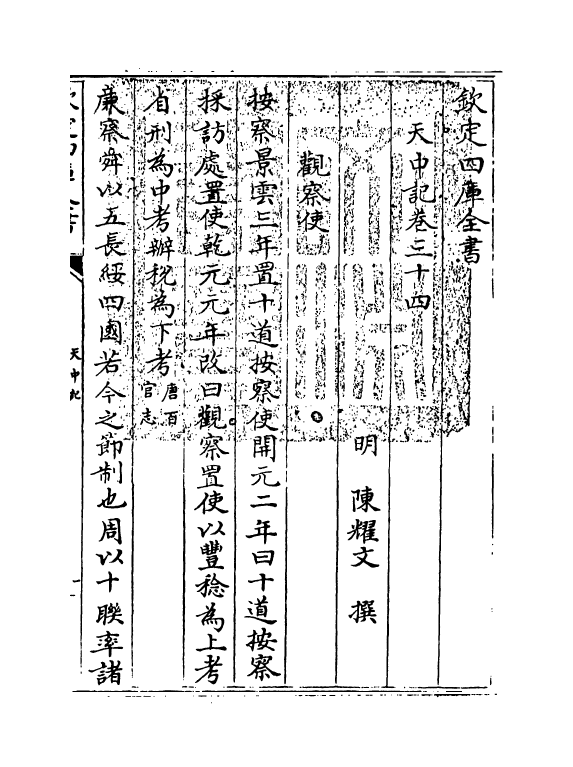 欽定四庫全書
天中記卷三十四
明 陳耀文 撰
觀察使
按察景雲三年置十道按察使開元二年曰十道按察
採訪處置使乾元元年改曰觀察置使以豐稔為上考
省刑為中考辦稅為下考唐百官志
廉察舜以五長綏四國若今之節制也周以十聯率諸
天中記